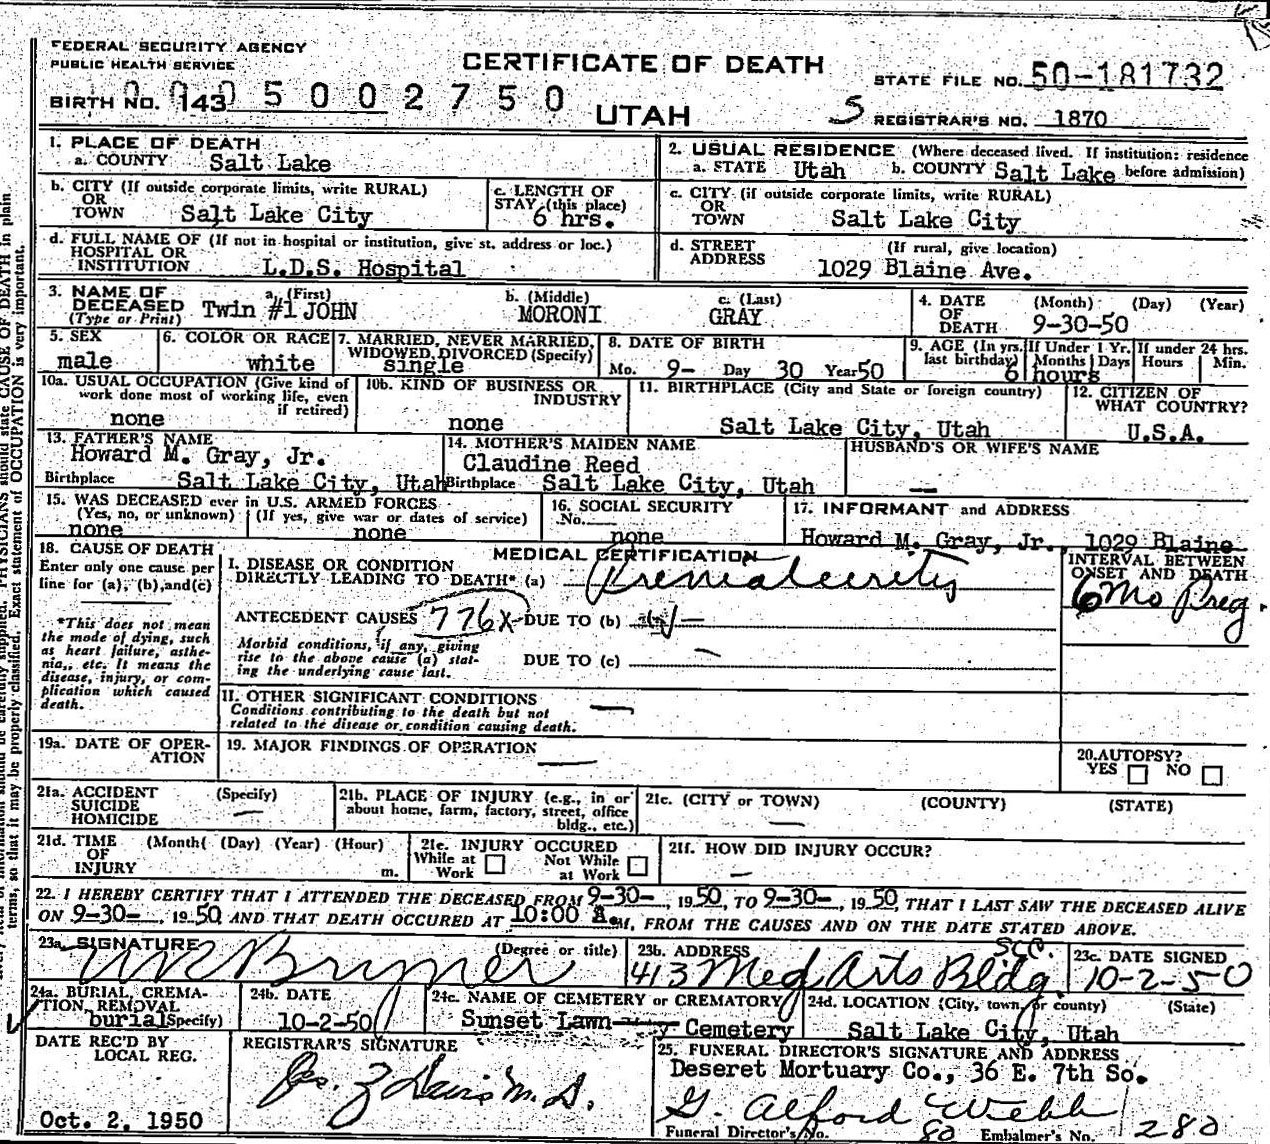 FEDERAL SECURITY AGENCY
PUBLIC HEALTH SERVICE
CERTIFICATE OF DEATH
STATE FILE NO. 50-181732
BIRTH NO. 143 0 0 5 0 0 2 7 5 0
UTAH
S REGISTRAR'S NO. 1870
1. PLACE OF DEATH
a. COUNTY Salt Lake
2. USUAL RESIDENCE (Where deceased lived. If institution: residence before admission)
a. STATE Utah b. COUNTY Salt Lake
b. CITY (If outside corporate limits, write RURAL) OR TOWN Salt Lake City
c. LENGTH OF STAY (this place) 6 hrs.
c. CITY (if outside corporate limits, write RURAL) OR TOWN Salt Lake City
d. FULL NAME OF (If not in hospital or institution, give st. address or loc.) HOSPITAL OR INSTITUTION L.D.S. Hospital
d. STREET ADDRESS (If rural, give location) 1029 Blaine Ave.
3. NAME OF DECEASED (Type or Print)
a. (First) Twin #1 JOHN
b. (Middle) MORONI
c. (Last) GRAY
4. DATE OF DEATH (Month) (Day) (Year) 9-30-50
5. SEX male
6. COLOR OR RACE white
7. MARRIED, NEVER MARRIED, WIDOWED, DIVORCED (Specify) single
8. DATE OF BIRTH Mo. 9- Day 30 Year 50
9. AGE (In yrs. last birthday) If Under 1 Yr. Months Days If under 24 hrs. Hours Min. 6 hours
10a. USUAL OCCUPATION (Give kind of work done most of working life, even if retired) none
10b. KIND OF BUSINESS OR INDUSTRY none
11. BIRTHPLACE (City and State or foreign country) Salt Lake City, Utah
12. CITIZEN OF WHAT COUNTRY? U.S.A.
13. FATHER'S NAME Howard M. Gray, Jr.
Birthplace Salt Lake City, Utah
14. MOTHER'S MAIDEN NAME Claudine Reed
Birthplace Salt Lake City, Utah
HUSBAND'S OR WIFE'S NAME —
15. WAS DECEASED ever in U.S. ARMED FORCES (Yes, no, or unknown) none (If yes, give war or dates of service) none
16. SOCIAL SECURITY No. none
17. INFORMANT and ADDRESS Howard M. Gray, Jr. 1029 Blaine
18. CAUSE OF DEATH
Enter only one cause per line for (a), (b), and (c)
*This does not mean the mode of dying, such as heart failure, asthenia, etc. It means the disease, injury, or complication which caused death.
MEDICAL CERTIFICATION
I. DISEASE OR CONDITION DIRECTLY LEADING TO DEATH* (a)
INTERVAL BETWEEN ONSET AND DEATH 6 Mo Preg.
ANTECEDENT CAUSES 776X DUE TO (b) —
Morbid conditions, if any, giving rise to the above cause (a) stating the underlying cause last. DUE TO (c) —
II. OTHER SIGNIFICANT CONDITIONS —
Conditions contributing to the death but not related to the disease or condition causing death.
19a. DATE OF OPERATION
19. MAJOR FINDINGS OF OPERATION —
20. AUTOPSY? YES NO
21a. ACCIDENT SUICIDE HOMICIDE (Specify) —
21b. PLACE OF INJURY (e.g., in or about home, farm, factory, street, office bldg., etc.)
21c. (CITY or TOWN) (COUNTY) (STATE) —
21d. TIME OF INJURY (Month( (Day) (Year) (Hour) m.
21e. INJURY OCCURED While at Work Not While at Work
21f. HOW DID INJURY OCCUR? —
22. I HEREBY CERTIFY THAT I ATTENDED THE DECEASED FROM 9-30-, 19 50, TO 9-30-, 19 50, THAT I LAST SAW THE DECEASED ALIVE
ON 9-30-, 19 50 AND THAT DEATH OCCURED AT 10:00 a.M, FROM THE CAUSES AND ON THE DATE STATED ABOVE.
23a. SIGNATURE Brymer (Degree or title)
23b. ADDRESS 413 Med Arts Bldg. SLC.
23c. DATE SIGNED 10-2-50
24a. BURIAL, CREMATION, REMOVAL (Specify) burial
24b. DATE 10-2-50
24c. NAME OF CEMETERY or CREMATORY Sunset Lawn Cemetery
24d. LOCATION (City, town, or county) (State) Salt Lake City, Utah
DATE REC'D BY LOCAL REG. Oct. 2, 1950
REGISTRAR'S SIGNATURE Jas. Z Davis M.D.
25. FUNERAL DIRECTOR'S SIGNATURE AND ADDRESS
Deseret Mortuary Co., 36 E. 7th So.
G. Alford Webb
Funeral Director's No. 80 Embalmer's No. 280